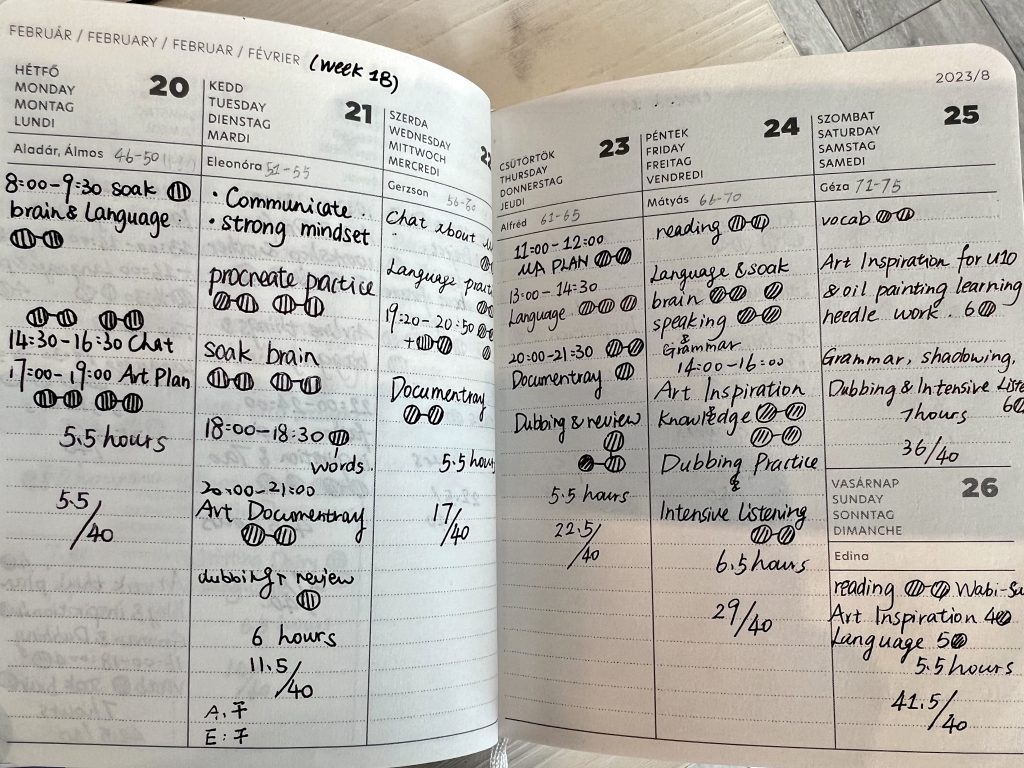 FEBRUÁR / FEBRUARY / FEBRUAR / FÉVRIER (week 18)
HÉTFŐ
MONDAY
MONTAG
LUNDI
20
Aladár, Álmos 46-50
8:00-9:30 soak
brain & Language.
14:30-16:30 Chat
17:00-19:00 Art Plan
5.5 hours
5.5/40
KEDD
TUESDAY
DIENSTAG
MARDI
21
Eleonóra 51-55
· Communicate.
· strong mindset
procreate practice
soak brain
18:00-18:30
words.
20:00-21:00
Art Documentray
dubbing + review
6 hours
11.5/40
A: 干
E: 干
SZERDA
WEDNESDAY
MITTWOCH
MERCREDI
Gerzson 56-60
Chat about
Language
19:20-20:50
+
Documentray
5.5 hours
17/40
2023/8
CSÜTÖRTÖK
THURSDAY
DONNERSTAG
JEUDI
23
Alfréd 61-65
11:00-12:00
MA PLAN
13:00-14:30
Language
20:00-21:30
Documentray
Dubbing & review
5.5 hours
22.5/40
PÉNTEK
FRIDAY
FREITAG
VENDREDI
24
Mátyás 66-70
reading
Language & soak
brain
speaking
& Grammar
14:00-16:00
Art Inspiration
&
Knowledge
Dubbing Practice
&
Intensive Listening
6.5 hours
29/40
SZOMBAT
SATURDAY
SAMSTAG
SAMEDI
25
Géza 71-75
vocab
Art Inspiration for U10
& oil painting learning
needle work. 6
Grammar, shadowing,
Dubbing & Intensive
6
7 hours
36/40
VASÁRNAP
SUNDAY
SONNTAG
DIMANCHE
26
Edina
reading
Art Inspiration 4
Language 5
5.5 hours
41.5/40